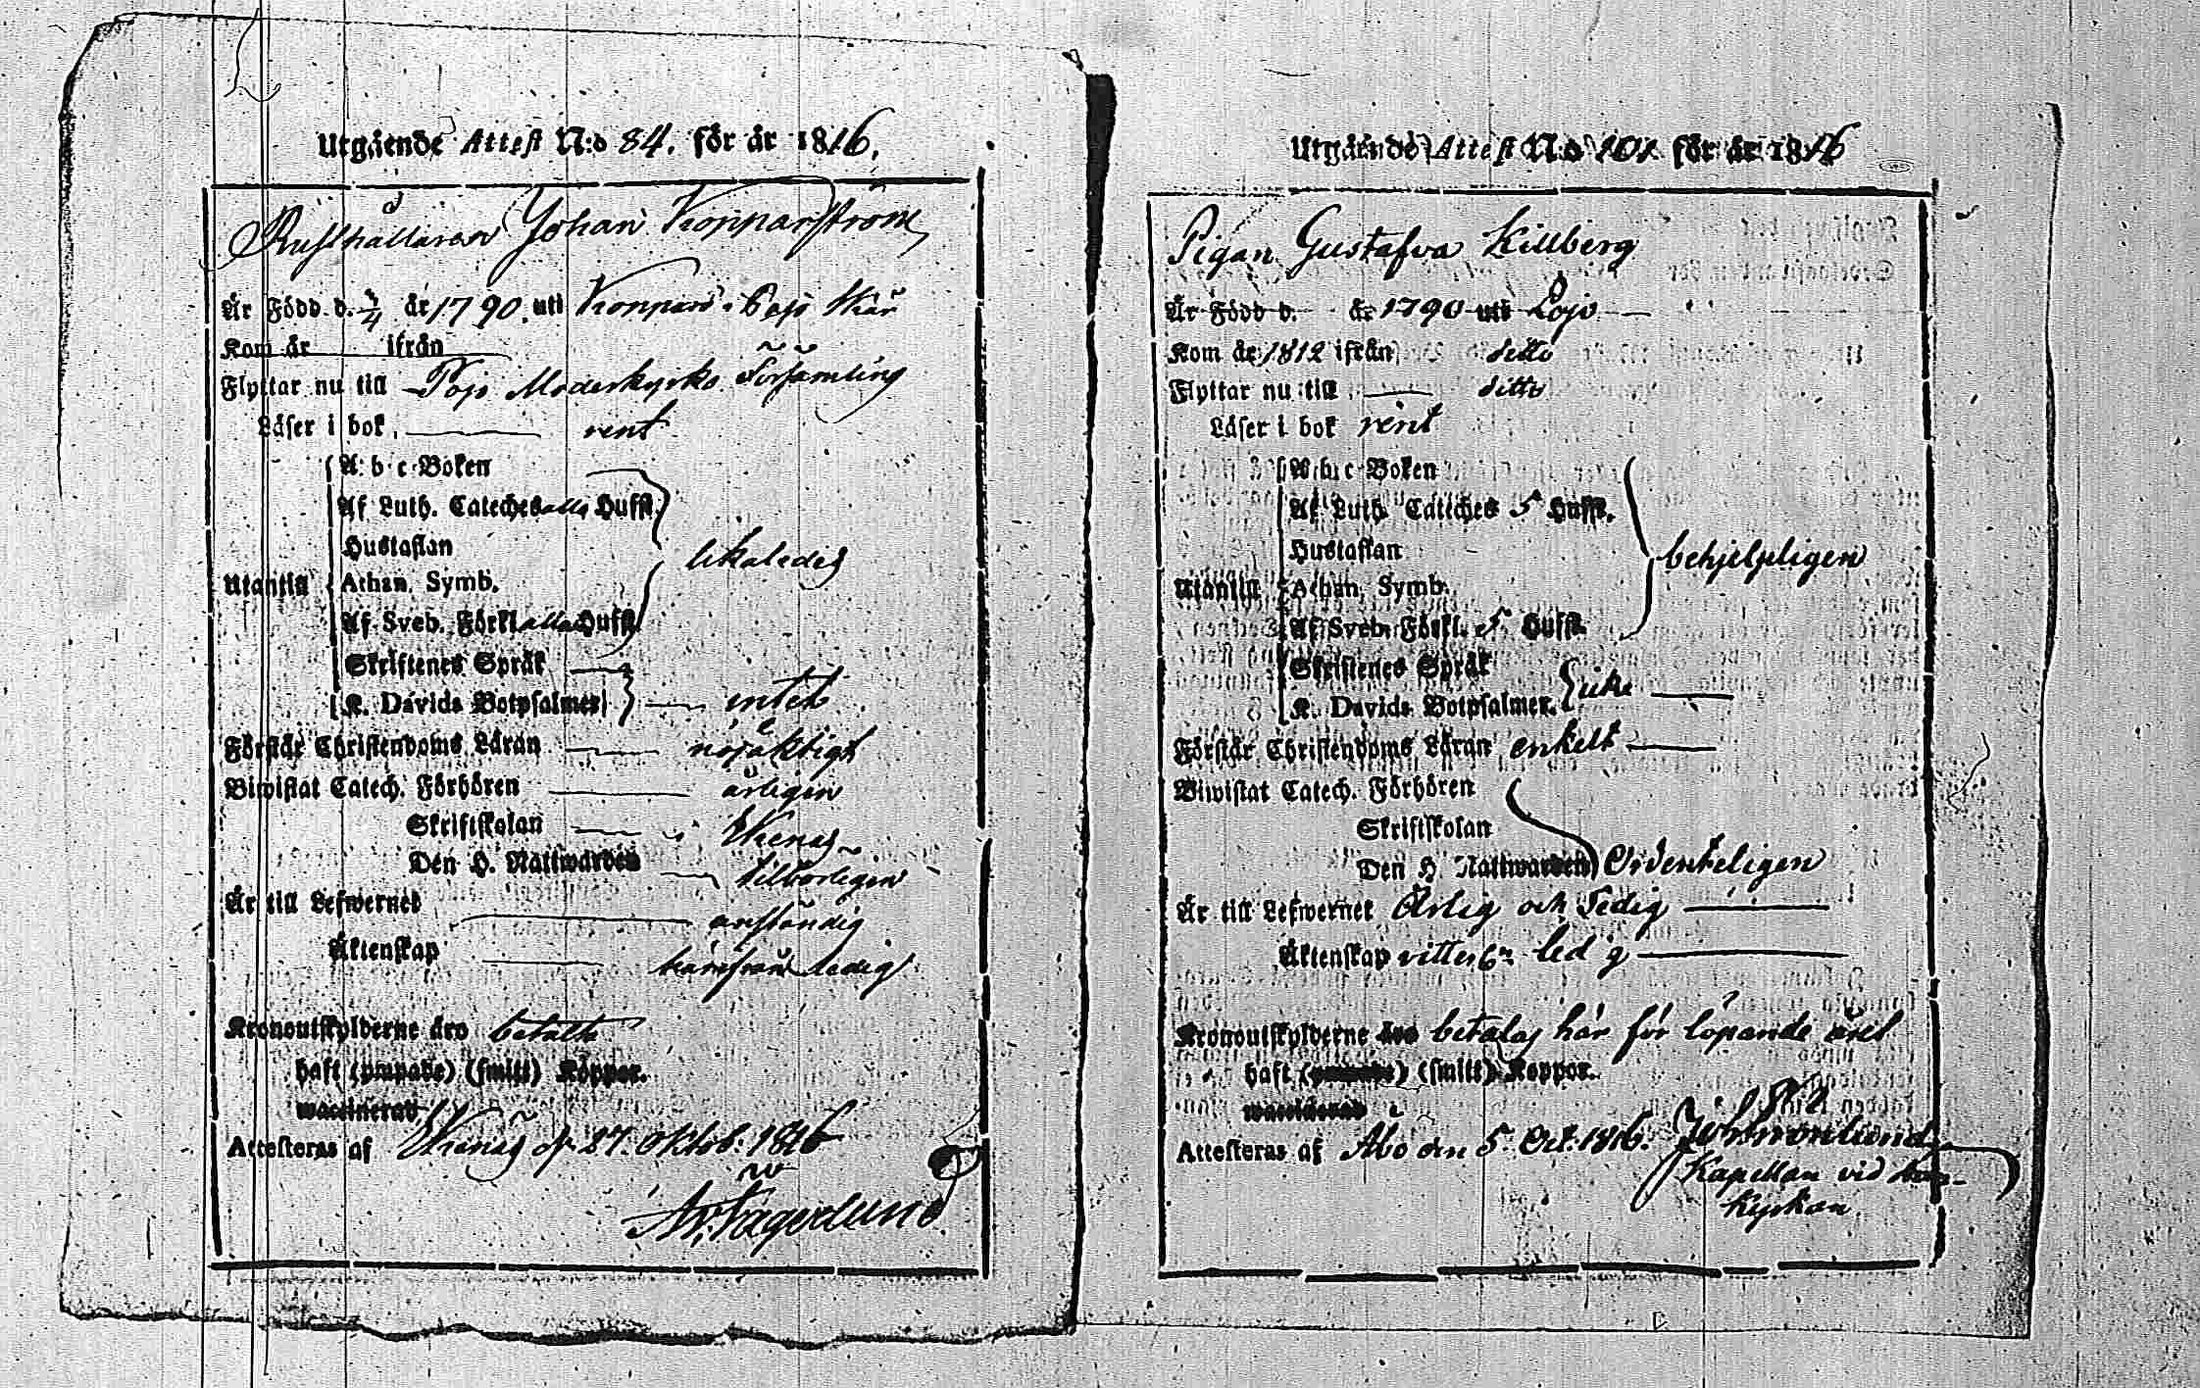 Utgående Attest N:o 84. för år 1816.
Rusthållaren Johan Kopparström
Är Född d. 4/4 år 1790. uti Pojo Skär
Kom år ifrån
Flyttar nu till Pojo Moderkyrko Församling
Läser i bok rent
A b c Boken
Af Luth. Cateches alla Hufst.
Hustaflan
likaledes
Utantill
Athan. Symb.
Af Sveb. Förkl. alla Hufst.
Skriftenes Språk
K. Davids Botpsalmer intet
Förstår Christendoms Läran nöjaktigt
Biwistat Catech. Förhören årligen
Skriftskolan Ekenäs
Den H. Nattwarden tilbörligen
Är till Lefwernet anständig
Äktenskap härifrån ledig
Kronoutskylderne äro betalte
haft (smitt) Koppor.
waccinerad
Attesteras af Ekenäs d. 27. Oktob. 1816
Fagerlund
Utgående Attest N:o 101 för år 1816
Pigan Gustafva Killberg
Är Född d. år 1790 uti Lojo
Kom år 1812 ifrån ditto
Flyttar nu till ditto
Läser i bok rent
A b c Boken
Af Luth. Cateches 5 Hufst.
Hustaflan
behjelpligen
Utantill
Athan. Symb.
Af Sveb. Förkl. 5 Hufst.
Skriftenes Språk
K. Davids Botpsalmer. icke
Förstår Christendoms Läran enkelt
Biwistat Catech. Förhören
Skriftskolan
Den H. Nattwarden Ordenteligen
Är till Lefwernet Ärlig och Sedig
Äktenskap ledig
Kronoutskylderne äro betalas här för löpande året
haft (smitt) Koppor.
waccinerad
Attesteras af Åbo den 5. Oct. 1816.
Kapellan vid
Kyrkan